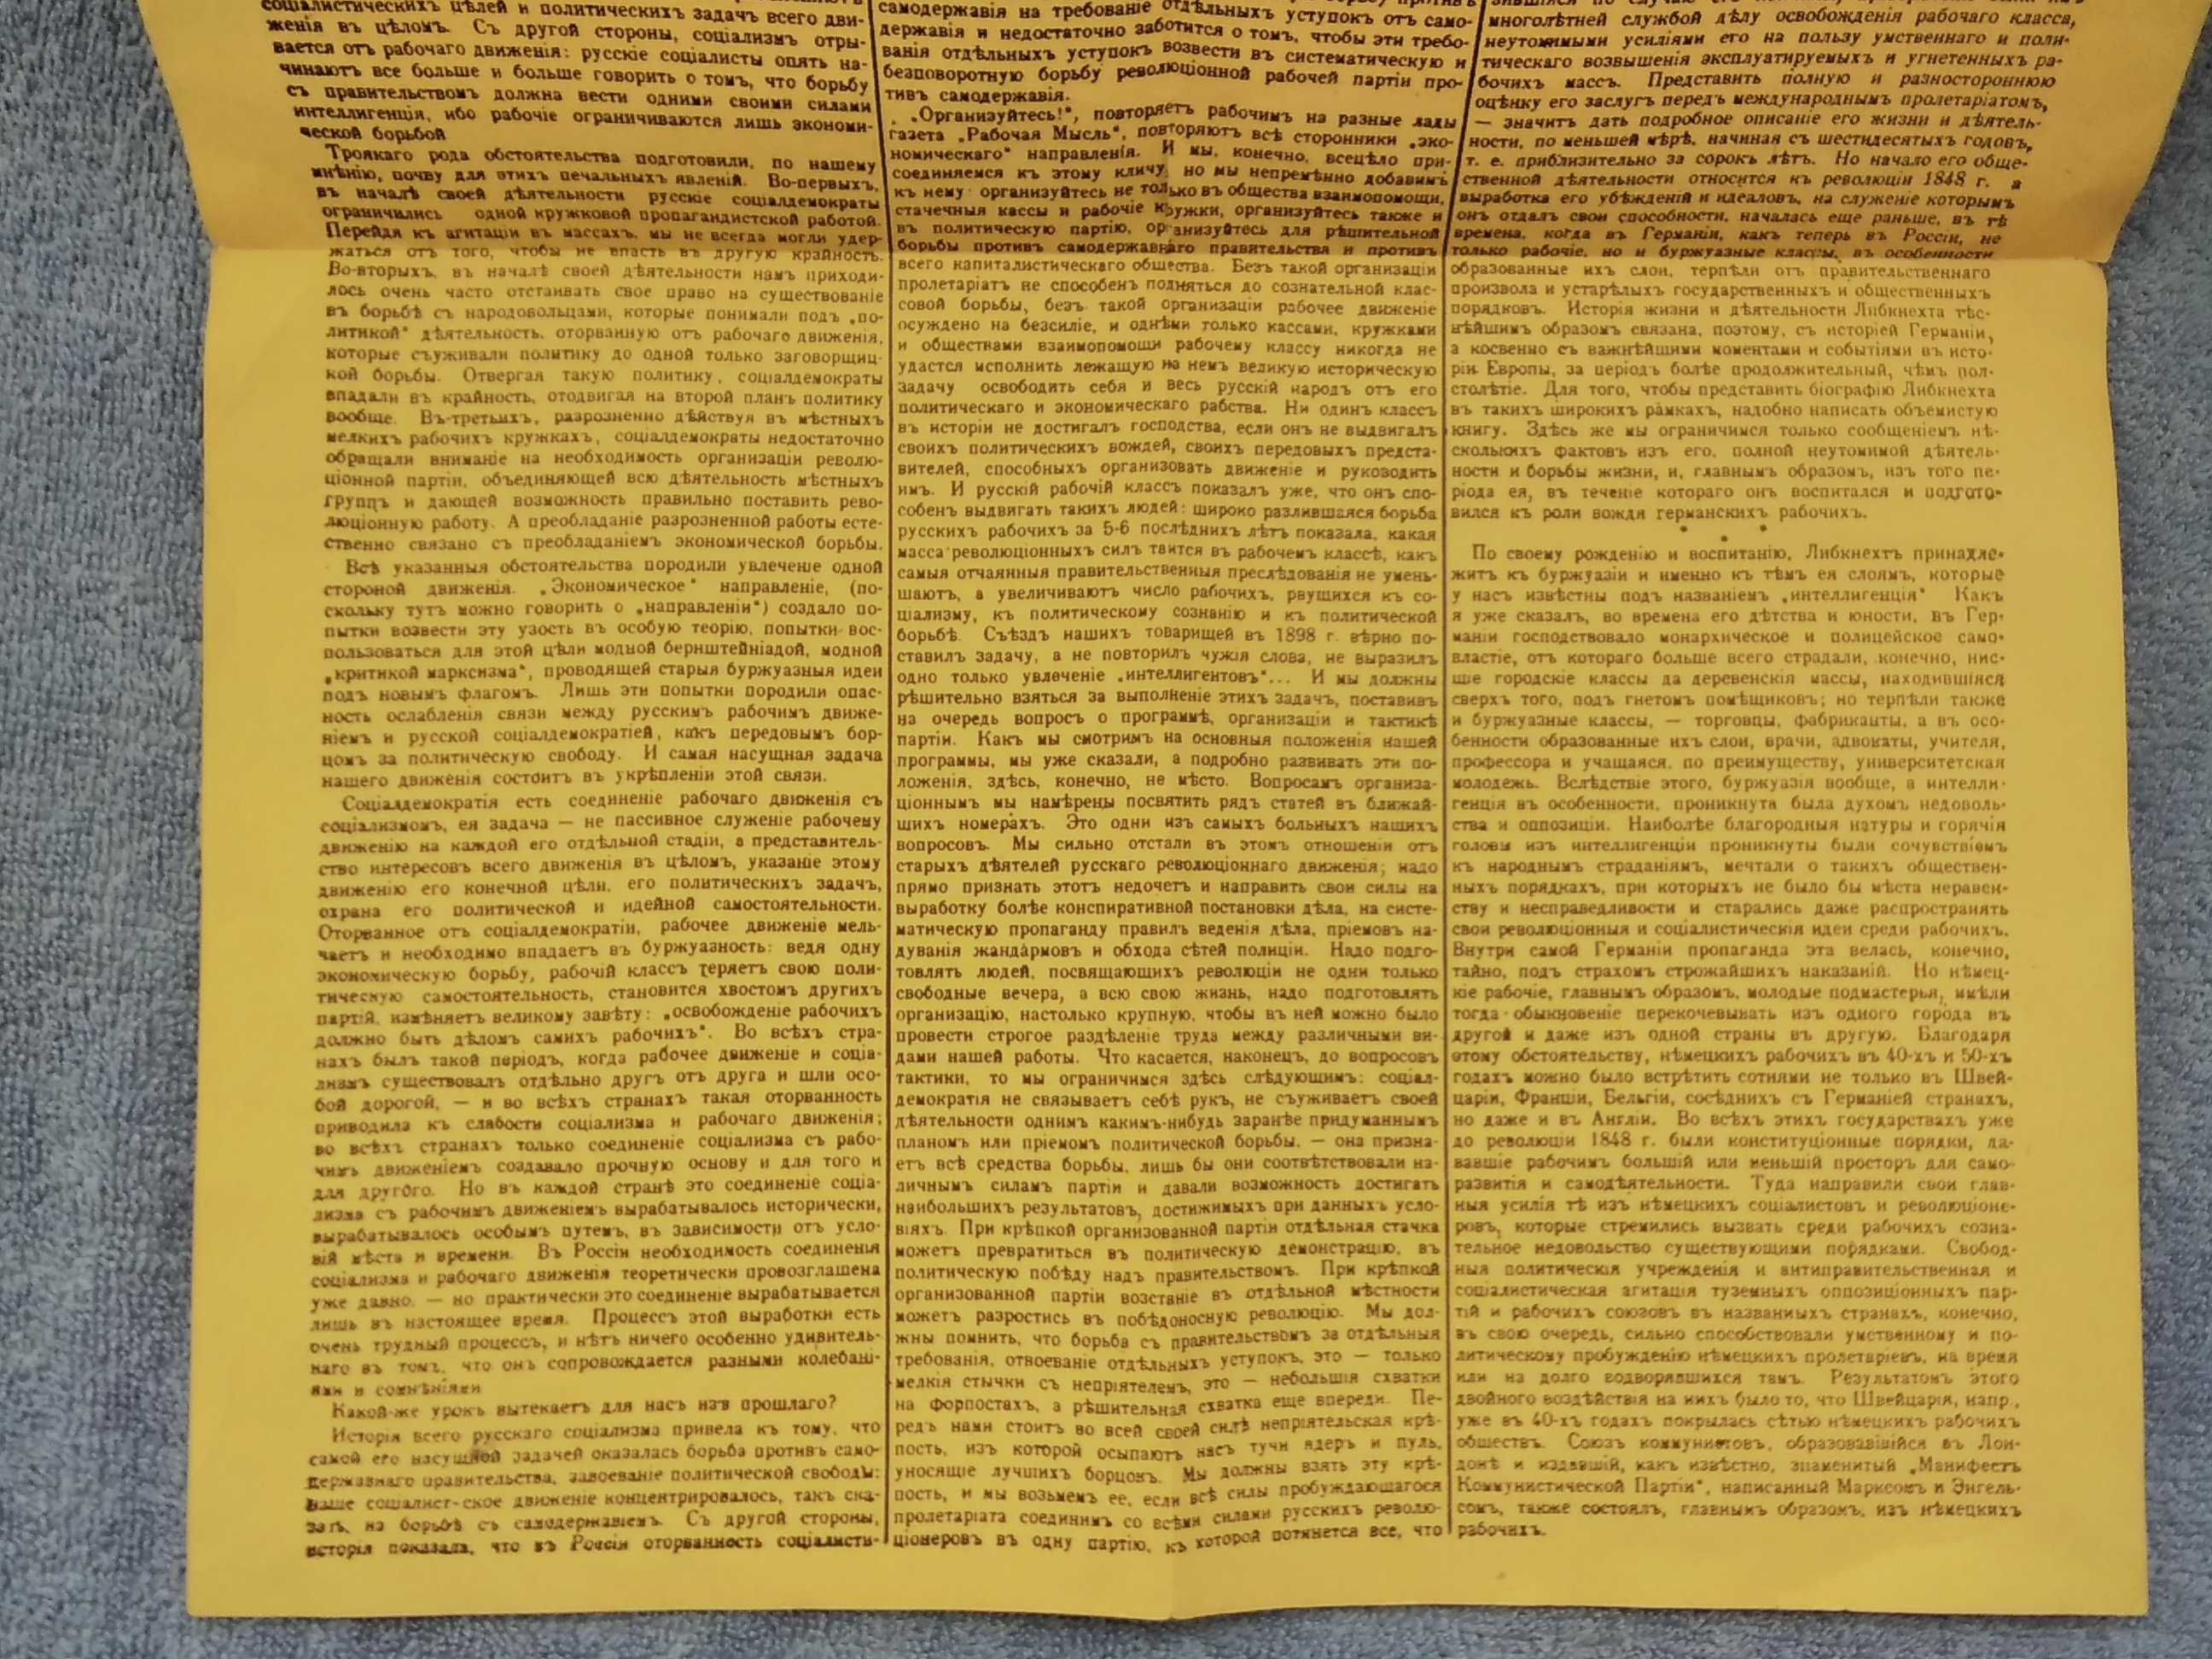 соціалистическихъ цѣлей и политическихъ задачъ всего дви-
женія въ цѣломъ. Съ другой стороны, соціализмъ отры-
вается отъ рабочаго движенія: русскіе соціалисты опять на-
чинаютъ все больше и больше говорить о томъ, что борьбу
съ правительствомъ должна вести одними своими силами
интеллигенція, ибо рабочіе ограничиваются лишь экономи-
ческой борьбой
Троякаго рода обстоятельства подготовили, по нашему
мнѣнію, почву для этихъ печальныхъ явленій. Во-первыхъ,
въ началѣ своей дѣятельности русскіе соціалдемократы
ограничились одной кружковой пропагандистской работой.
Перейдя къ агитаціи въ массахъ, мы не всегда могли удер-
жаться отъ того, чтобы не впасть въ другую крайность.
Во-вторыхъ, въ началѣ своей дѣятельности намъ приходи-
лось очень часто отстаивать свое право на существованіе
въ борьбѣ съ народовольцами, которые понимали подъ „по-
литикой“ дѣятельность, оторванную отъ рабочаго движенія,
которые съуживали политику до одной только заговорщиц-
кой борьбы. Отвергая такую политику, соціалдемократы
впадали въ крайность, отодвигая на второй планъ политику
вообще. Въ-третьихъ, разрозненно дѣйствуя въ мѣстныхъ
мелкихъ рабочихъ кружкахъ, соціалдемократы недостаточно
обращали вниманіе на необходимость организаціи револю-
ціонной партіи, объединяющей всю дѣятельность мѣстныхъ
группъ и дающей возможность правильно поставить рево-
люціонную работу. А преобладаніе разрозненной работы есте-
ственно связано съ преобладаніемъ экономической борьбы.
Всѣ указанныя обстоятельства породили увлеченіе одной
стороной движенія. „Экономическое“ направленіе, (по-
скольку тутъ можно говорить о „направленіи“) создало по-
пытки возвести эту узость въ особую теорію, попытки вос-
пользоваться для этой цѣли модной бернштейніадой, модной
„критикой марксизма“, проводящей старыя буржуазныя идеи
подъ новымъ флагомъ. Лишь эти попытки породили опас-
ность ослабленія связи между русскимъ рабочимъ движе-
ніемъ и русской соціалдемократіей, какъ передовымъ бор-
цомъ за политическую свободу. И самая насущная задача
нашего движенія состоитъ въ укрѣпленіи этой связи.
Соціалдемократія есть соединеніе рабочаго движенія съ
соціализмомъ, ея задача — не пассивное служеніе рабочему
движенію на каждой его отдѣльной стадіи, а представитель-
ство интересовъ всего движенія въ цѣломъ, указаніе этому
движенію его конечной цѣли, его политическихъ задачъ,
охрана его политической и идейной самостоятельности.
Оторванное отъ соціалдемократіи, рабочее движеніе мель-
чаетъ и необходимо впадаетъ въ буржуазность: ведя одну
экономическую борьбу, рабочій классъ теряетъ свою поли-
тическую самостоятельность, становится хвостомъ другихъ
партій, измѣняетъ великому завѣту: „освобожденіе рабочихъ
должно быть дѣломъ самихъ рабочихъ“. Во всѣхъ стра-
нахъ былъ такой періодъ, когда рабочее движеніе и соціа-
лизмъ существовалъ отдѣльно другъ отъ друга и шли осо-
бой дорогой, — и во всѣхъ странахъ такая оторванность
приводила къ слабости соціализма и рабочаго движенія;
во всѣхъ странахъ только соединеніе соціализма съ рабо-
чимъ движеніемъ создавало прочную основу и для того и
для другого. Но въ каждой странѣ это соединеніе соціа-
лизма съ рабочимъ движеніемъ вырабатывалось исторически,
вырабатывалось особымъ путемъ, въ зависимости отъ усло-
вій мѣста и времени. Въ Россіи необходимость соединенія
соціализма и рабочаго движенія теоретически провозглашена
уже давно, — но практически это соединеніе вырабатывается
лишь въ настоящее время. Процессъ этой выработки есть
очень трудный процессъ, и нѣтъ ничего особенно удивитель-
наго въ томъ, что онъ сопровождается разными колебані-
ями и сомнѣніями
Какой-же урокъ вытекаетъ для насъ изъ прошлаго?
Исторія всего русскаго соціализма привела къ тому, что
самой его насущной задачей оказалась борьба противъ само-
державнаго правительства, завоеваніе политической свободы:
наше соціалист-ское движеніе концентрировалось, такъ ска-
зать, на борьбѣ съ самодержавіемъ. Съ другой стороны,
исторія показала, что въ Россіи оторванность соціалисти-
самодержавія на требованіе отдѣльныхъ уступокъ отъ само-
державія и недостаточно заботится о томъ, чтобы эти требо-
ванія отдѣльныхъ уступокъ возвести въ систематическую и
безповоротную борьбу революціонной рабочей партіи про-
тивъ самодержавія.
„Организуйтесь!“, повторяетъ рабочимъ на разные лады
газета „Рабочая Мысль“, повторяютъ всѣ сторонники „эко-
номическаго“ направленія. И мы, конечно, всецѣло при-
соединяемся къ этому кличу, но мы непремѣнно добавимъ
къ нему: организуйтесь не только въ общества взаимопомощи,
стачечныя кассы и рабочіе кружки, организуйтесь также и
въ политическую партію, организуйтесь для рѣшительной
борьбы противъ самодержавнаго правительства и противъ
всего капиталистическаго общества. Безъ такой организаціи
пролетаріатъ не способенъ подняться до сознательной клас-
совой борьбы, безъ такой организаціи рабочее движеніе
осуждено на безсиліе, и однѣми только кассами, кружками
и обществами взаимопомощи рабочему классу никогда не
удастся исполнить лежащую на немъ великую историческую
задачу освободить себя и весь русскій народъ отъ его
политическаго и экономическаго рабства. Ни одинъ классъ
въ исторіи не достигалъ господства, если онъ не выдвигалъ
своихъ политическихъ вождей, своихъ передовыхъ предста-
вителей, способныхъ организовать движеніе и руководить
имъ. И русскій рабочій классъ показалъ уже, что онъ спо-
собенъ выдвигать такихъ людей: широко разлившаяся борьба
русскихъ рабочихъ за 5-6 послѣднихъ лѣтъ показала, какая
масса революціонныхъ силъ таится въ рабочемъ классѣ, какъ
самыя отчаянныя правительственныя преслѣдованія не умень-
шаютъ, а увеличиваютъ число рабочихъ, рвущихся къ со-
ціализму, къ политическому сознанію и къ политической
борьбѣ. Съѣздъ нашихъ товарищей въ 1898 г. вѣрно по-
ставилъ задачу, а не повторилъ чужія слова, не выразилъ
одно только увлеченіе „интеллигентовъ“... И мы должны
рѣшительно взяться за выполненіе этихъ задачъ, поставивъ
на очередь вопросъ о программѣ, организаціи и тактикѣ
партіи. Какъ мы смотримъ на основныя положенія нашей
программы, мы уже сказали, а подробно развивать эти по-
ложенія, здѣсь, конечно, не мѣсто. Вопросамъ организа-
ціоннымъ мы намѣрены посвятить рядъ статей въ ближай-
шихъ номерахъ. Это одни изъ самыхъ больныхъ нашихъ
вопросовъ. Мы сильно отстали въ этомъ отношеніи отъ
старыхъ дѣятелей русскаго революціоннаго движенія; надо
прямо признать этотъ недочетъ и направить свои силы на
выработку болѣе конспиративной постановки дѣла, на систе-
матическую пропаганду правилъ веденія дѣла, пріемовъ на-
дуванія жандармовъ и обхода сѣтей полиціи. Надо подго-
товлять людей, посвящающихъ революціи не одни только
свободные вечера, а всю свою жизнь, надо подготовлять
организацію, настолько крупную, чтобы въ ней можно было
провести строгое раздѣленіе труда между различными ви-
дами нашей работы. Что касается, наконецъ, до вопросовъ
тактики, то мы ограничимся здѣсь слѣдующимъ: соціал-
демократія не связываетъ себѣ рукъ, не съуживаетъ своей
дѣятельности однимъ какимъ-нибудь заранѣе придуманнымъ
планомъ или пріемомъ политической борьбы, — она призна-
етъ всѣ средства борьбы, лишь бы они соотвѣтствовали на-
личнымъ силамъ партіи и давали возможность достигать
наибольшихъ результатовъ, достижимыхъ при данныхъ усло-
віяхъ. При крѣпкой организованной партіи отдѣльная стачка
можетъ превратиться въ политическую демонстрацію, въ
политическую побѣду надъ правительствомъ. При крѣпкой
организованной партіи возстаніе въ отдѣльной мѣстности
можетъ разростись въ побѣдоносную революцію. Мы дол-
жны помнить, что борьба съ правительствомъ за отдѣльныя
требованія, отвоеваніе отдѣльныхъ уступокъ, это — только
мелкія стычки съ непріятелемъ, это — небольшія схватки
на форпостахъ, а рѣшительная схватка еще впереди. Пе-
редъ нами стоитъ во всей своей силѣ непріятельская крѣ-
пость, изъ которой осыпаютъ насъ тучи ядеръ и пуль,
уносящіе лучшихъ борцовъ. Мы должны взять эту крѣ-
пость, и мы возьмемъ ее, если всѣ силы пробуждающагося
пролетаріата соединимъ со всѣми силами русскихъ револю-
ціонеровъ въ одну партію, къ которой потянется все, что
многолѣтней службой дѣлу освобожденія рабочаго класса,
неутомимыми усиліями его на пользу умственнаго и поли-
тическаго возвышенія эксплуатируемыхъ и угнетенныхъ ра-
бочихъ массъ. Представить полную и разностороннюю
оцѣнку его заслугъ передъ международнымъ пролетаріатомъ,
— значитъ дать подробное описаніе его жизни и дѣятель-
ности, по меньшей мѣрѣ, начиная съ шестидесятыхъ годовъ,
т. е. приблизительно за сорокъ лѣтъ. Но начало его обще-
ственной дѣятельности относится къ революціи 1848 г. а
выработка его убѣжденій и идеаловъ, на служеніе которымъ
онъ отдалъ свои способности, началась еще раньше, въ тѣ
времена, когда въ Германіи, какъ теперь въ Россіи, не
только рабочіе, но и буржуазные классы, въ особенности
образованные ихъ слои, терпѣли отъ правительственнаго
произвола и устарѣлыхъ государственныхъ и общественныхъ
порядковъ. Исторія жизни и дѣятельности Либкнехта тѣс-
нѣйшимъ образомъ связана, поэтому, съ исторіей Германіи,
а косвенно съ важнѣйшими моментами и событіями въ исто-
ріи Европы, за періодъ болѣе продолжительный, чѣмъ пол-
столѣтіе. Для того, чтобы представить біографію Либкнехта
въ такихъ широкихъ рамкахъ, надобно написать объемистую
книгу. Здѣсь же мы ограничимся только сообщеніемъ нѣ-
сколькихъ фактовъ изъ его, полной неутомимой дѣятель-
ности и борьбы жизни, и, главнымъ образомъ, изъ того пе-
ріода ея, въ теченіе котораго онъ воспитался и подгото-
вился къ роли вождя германскихъ рабочихъ.
* * *
По своему рожденію и воспитанію, Либкнехтъ принадле-
житъ къ буржуазіи и именно къ тѣмъ ея слоямъ, которые
у насъ извѣстны подъ названіемъ „интеллигенція“ Какъ
я уже сказалъ, во времена его дѣтства и юности, въ Гер-
маніи господствовало монархическое и полицейское само-
властіе, отъ котораго больше всего страдали, конечно, нис-
шіе городскіе классы да деревенскія массы, находившіяся
сверхъ того, подъ гнетомъ помѣщиковъ; но терпѣли также
и буржуазные классы, — торговцы, фабриканты, а въ осо-
бенности образованные ихъ слои, врачи, адвокаты, учителя,
профессора и учащаяся, по преимуществу, университетская
молодежь. Вслѣдствіе этого, буржуазія вообще, а интелли-
генція въ особенности, проникнута была духомъ недоволь-
ства и оппозиціи. Наиболѣе благородныя натуры и горячія
головы изъ интеллигенціи проникнуты были сочувствіемъ
къ народнымъ страданіямъ, мечтали о такихъ обществен-
ныхъ порядкахъ, при которыхъ не было бы мѣста неравен-
ству и несправедливости и старались даже распространять
свои революціонныя и соціалистическія идеи среди рабочихъ.
Внутри самой Германіи пропаганда эта велась, конечно,
тайно, подъ страхомъ строжайшихъ наказаній. Но нѣмец-
кіе рабочіе, главнымъ образомъ, молодые подмастерья, имѣли
тогда обыкновеніе перекочевывать изъ одного города въ
другой и даже изъ одной страны въ другую. Благодаря
этому обстоятельству, нѣмецкихъ рабочихъ въ 40-хъ и 50-хъ
годахъ можно было встрѣтить сотнями не только въ Швей-
царіи, Франціи, Бельгіи, сосѣднихъ съ Германіей странахъ,
но даже и въ Англіи. Во всѣхъ этихъ государствахъ уже
до революціи 1848 г. были конституціонные порядки, да-
вавшіе рабочимъ большій или меньшій просторъ для само-
развитія и самодѣятельности. Туда направили свои глав-
ныя усилія тѣ изъ нѣмецкихъ соціалистовъ и революціоне-
ровъ, которые стремились вызвать среди рабочихъ созна-
тельное недовольство существующими порядками. Свобод-
ныя политическія учрежденія и антиправительственная и
соціалистическая агитація туземныхъ оппозиціонныхъ пар-
тій и рабочихъ союзовъ въ названныхъ странахъ, конечно,
въ свою очередь, сильно способствовали умственному и по-
литическому пробужденію нѣмецкихъ пролетаріевъ, на время
или на долго водворявшихся тамъ. Результатомъ этого
двойного воздѣйствія на нихъ было то, что Швейцарія, напр.,
уже въ 40-хъ годахъ покрылась сѣтью нѣмецкихъ рабочихъ
обществъ. Союзъ коммунистовъ, образовавшійся въ Лон-
донѣ и издавшій, какъ извѣстно, знаменитый „Манифестъ
Коммунистической Партіи“, написанный Марксомъ и Энгель-
сомъ, также состоялъ, главнымъ образомъ, изъ нѣмецкихъ
рабочихъ.